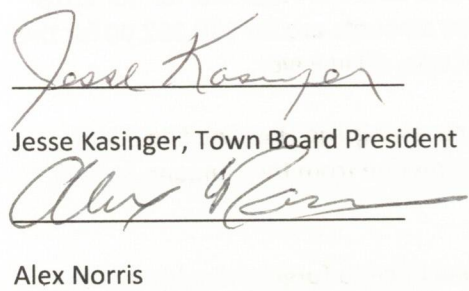 Jesse Kasinger
Jesse Kasinger, Town Board President
Alex Norris
Alex Norris